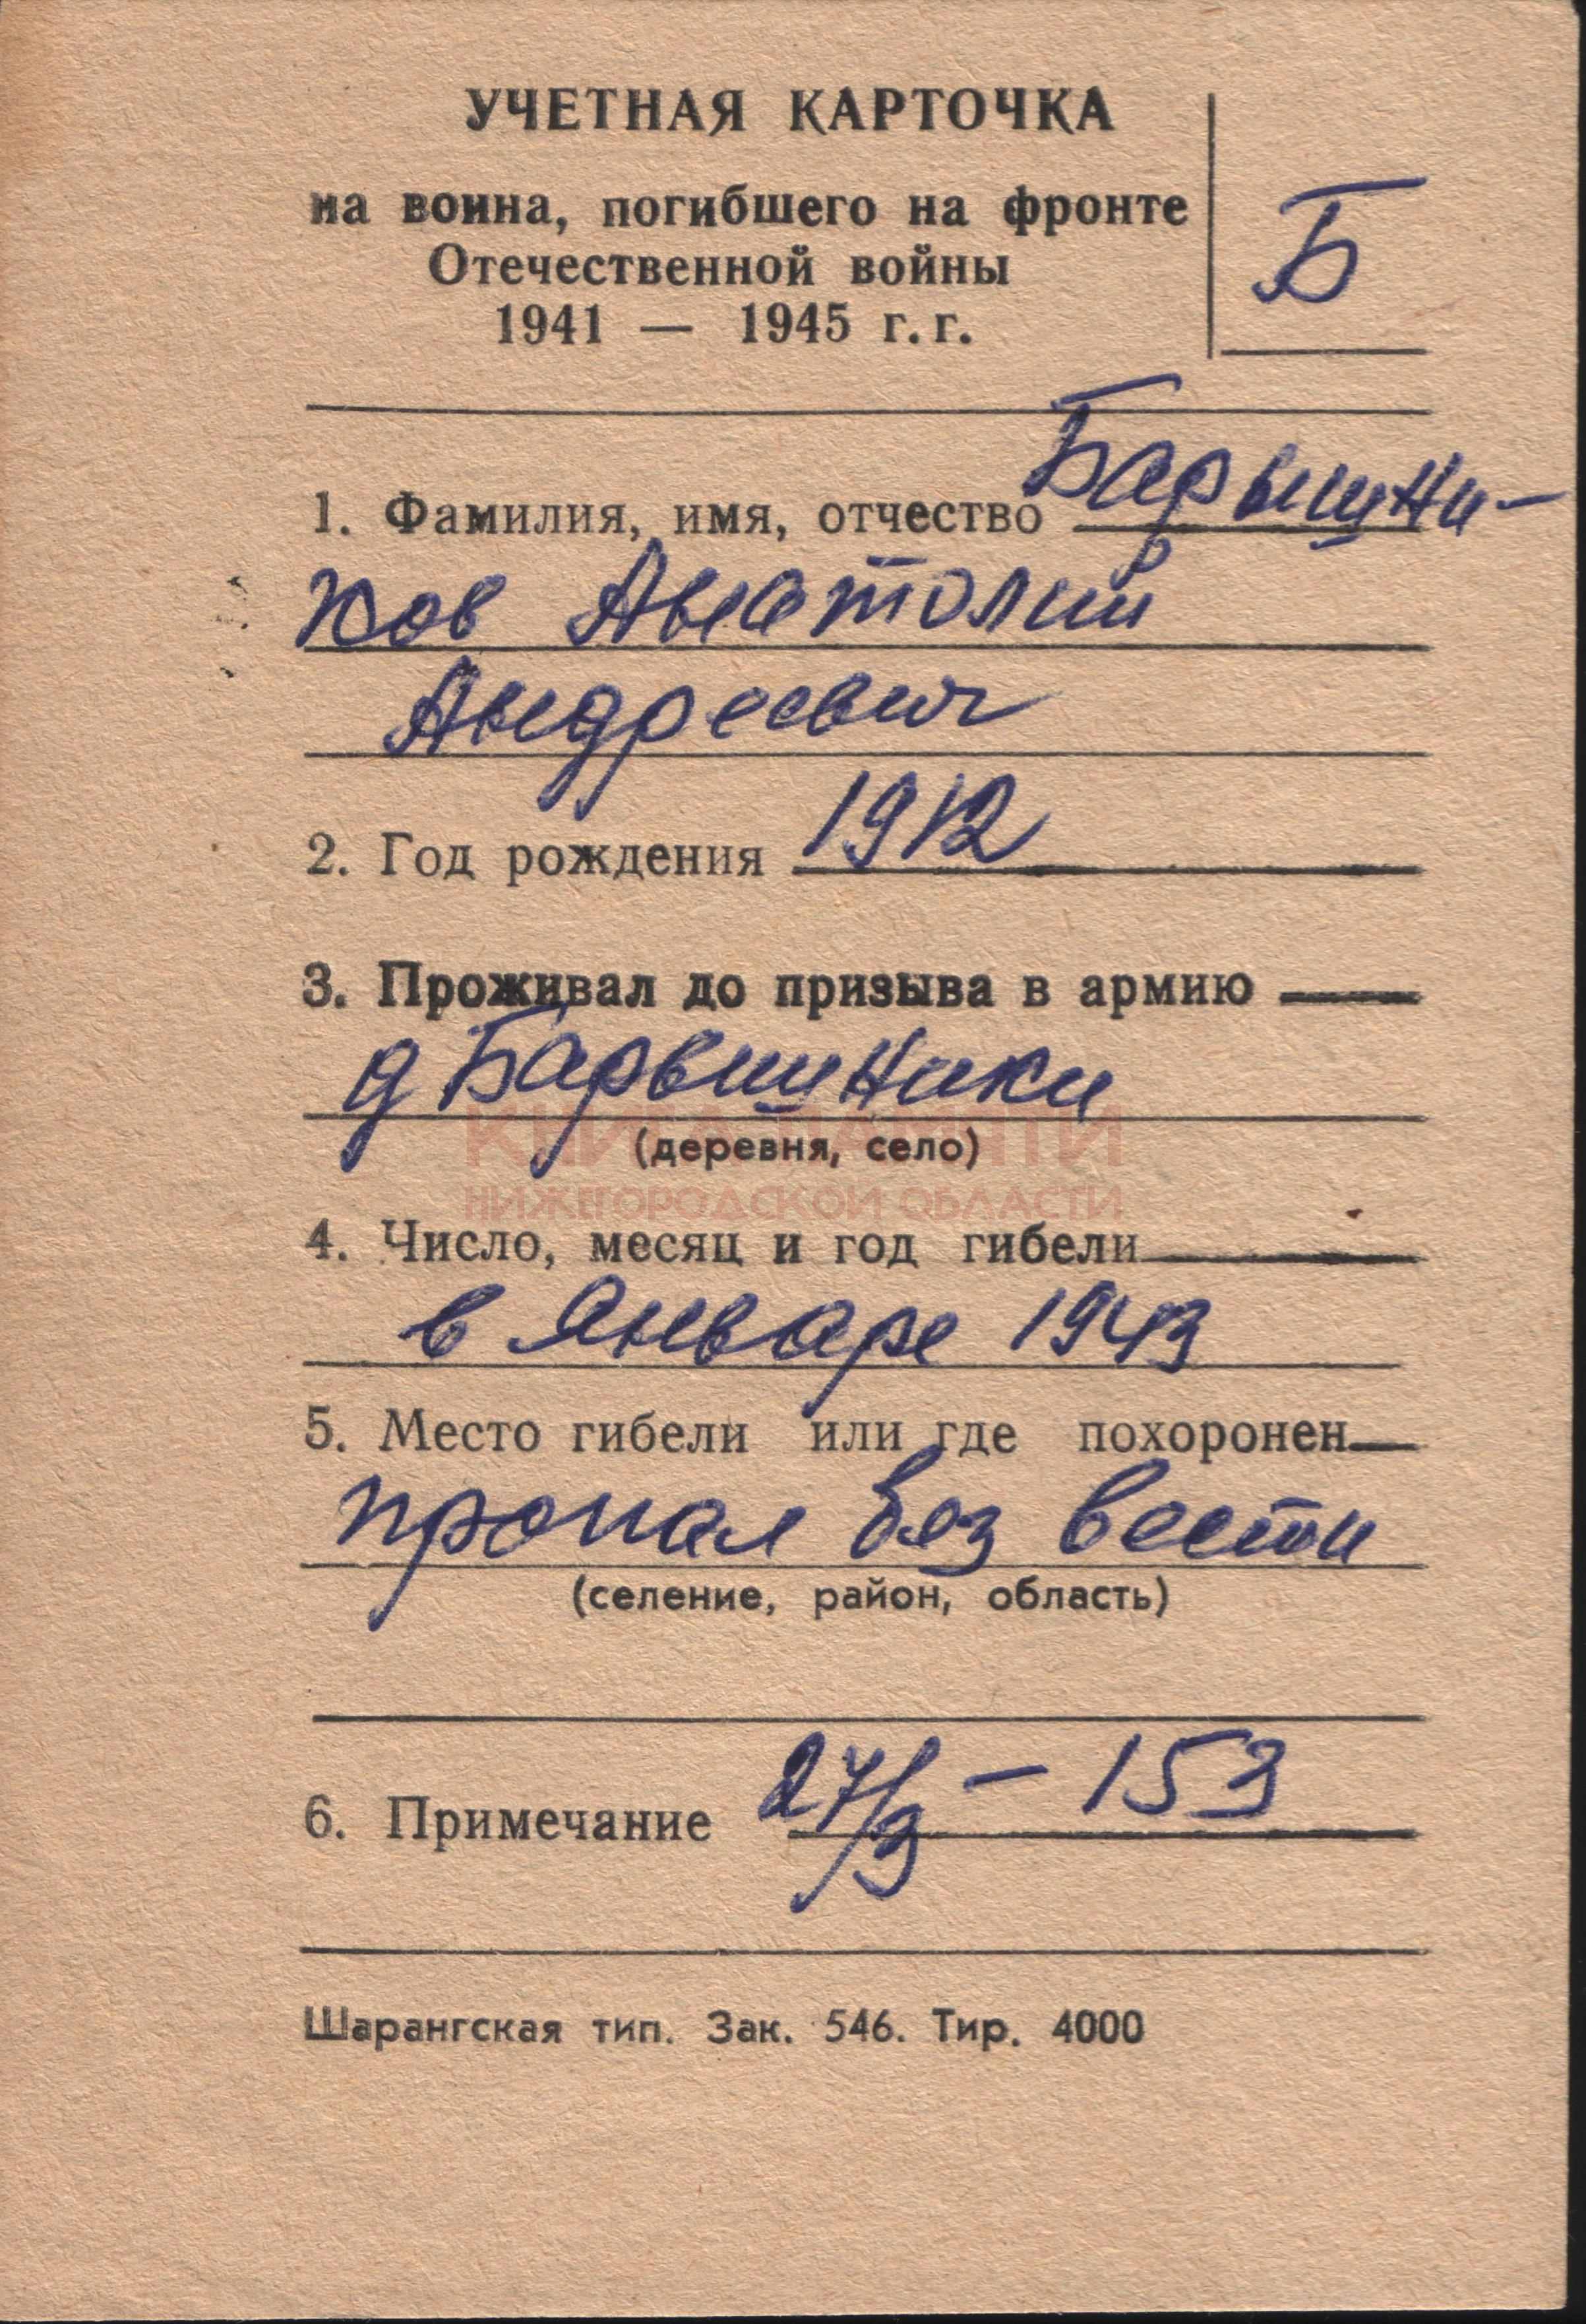 УЧЕТНАЯ КАРТОЧКА
на воина, погибшего на фронте
Отечественной войны
1941 — 1945 г.г.
Б
1. Фамилия, имя, отчество Барышни-
ков Анатолий
Андреевич
2. Год рождения 1912
3. Проживал до призыва в армию
д Барышники
(деревня, село)
КНИГА ПАМЯТИ
НИЖЕГОРОДСКОЙ ОБЛАСТИ
4. Число, месяц и год гибели
в Январе 1943
5. Место гибели или где похоронен
пропал без вести
(селение, район, область)
6. Примечание 27/3 – 153
Шарангская тип. Зак. 546. Тир. 4000